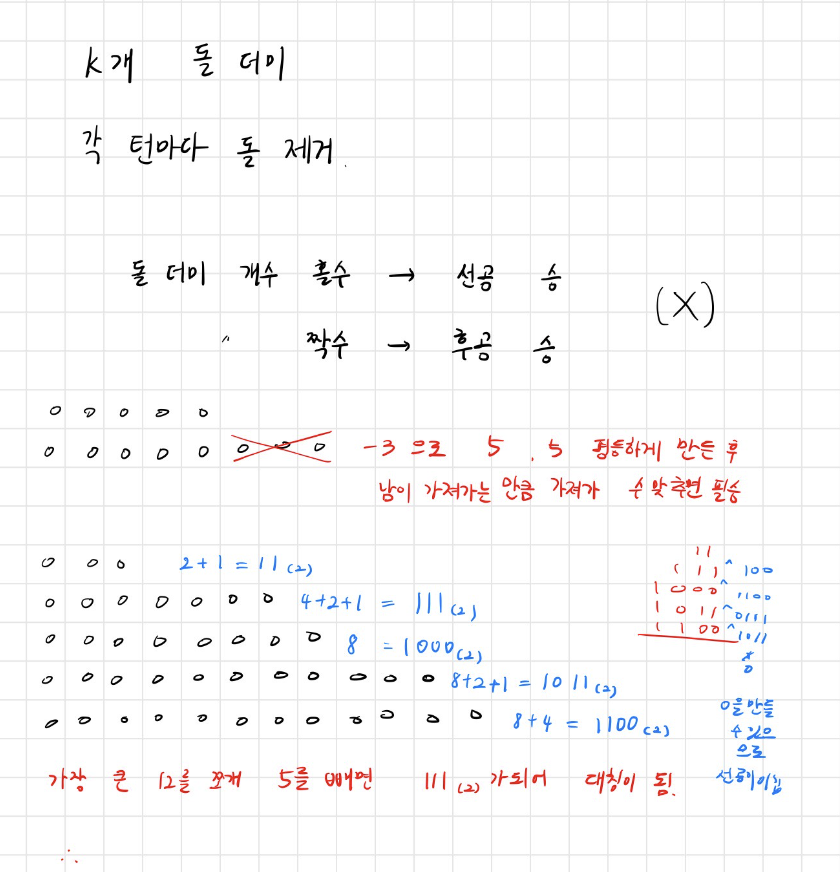 k개 돌 더미
각 턴마다 돌 제거.
돌 더미 개수 홀수 → 선공 승
〃 짝수 → 후공 승
(X)
-3 으로 5, 5 평등하게 만든 후
남이 가져가는 만큼 가져가 수 맞추면 필승
2+1 = 11(2)
4+2+1 = 111(2)
8 = 1000(2)
8+2+1 = 1011(2)
8+4 = 1100(2)
11
111 ^ 100
1000 ^ 1100
1011 ^ 0111
1100 ^ 1011
0
0을 만들
수 있으
므로
가장 큰 12를 쪼개 5를 빼면 111(2)가 되어 대칭이 됨.
∴